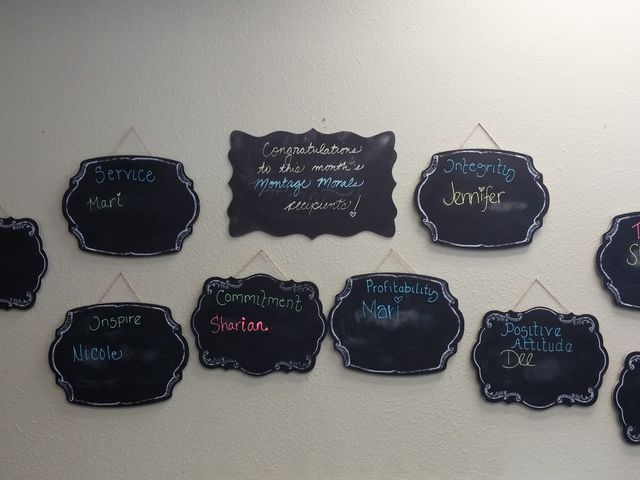 Congratulations
to this month's
Montage Morals
recipients!
Service
Mari
Integrity
Jennifer
Inspire
Nicole
Commitment
Sharian
Profitability
Mari
Positive
Attitude
Dee